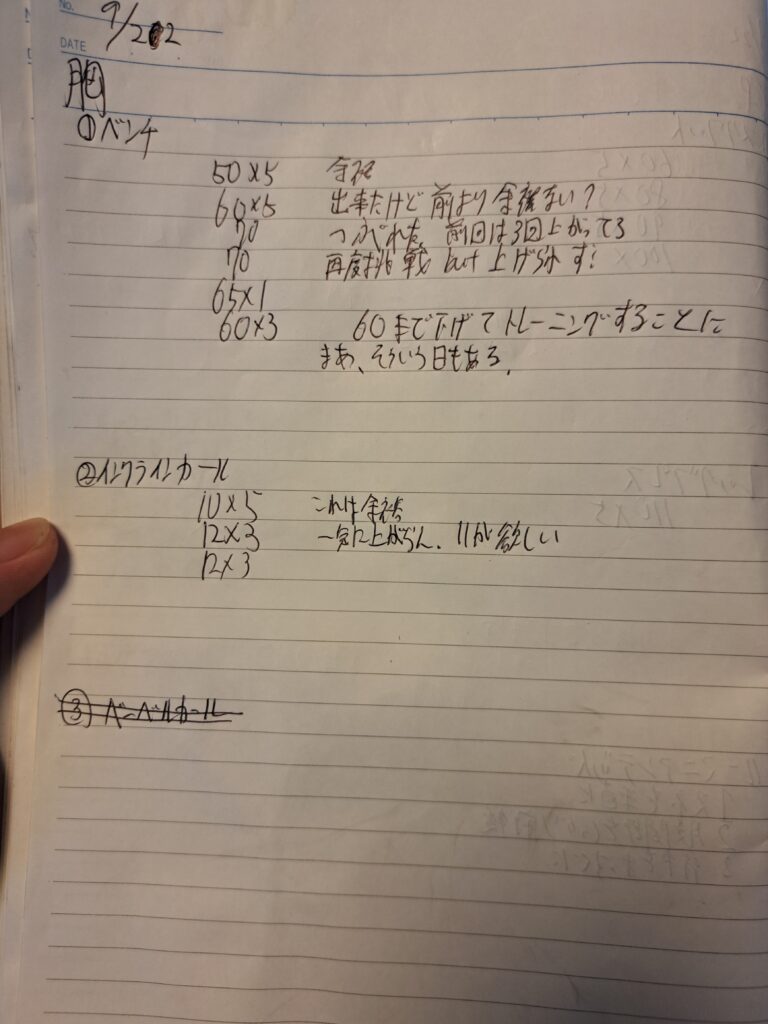 No. 9/22
DATE
胸
①ベンチ
50×5 余裕
60×5 出来たけど前より余裕ない?
70 つぶれた 前回は3回上がってる
70 再度挑戦 上げられず!
65×1
60×3 60まで下げてトレーニングすることに
まあ、そういう日もある.
②インクラインカール
10×5 これは余裕
12×3 一気に上がらん. 11が欲しい
12×3
③バーベルカール